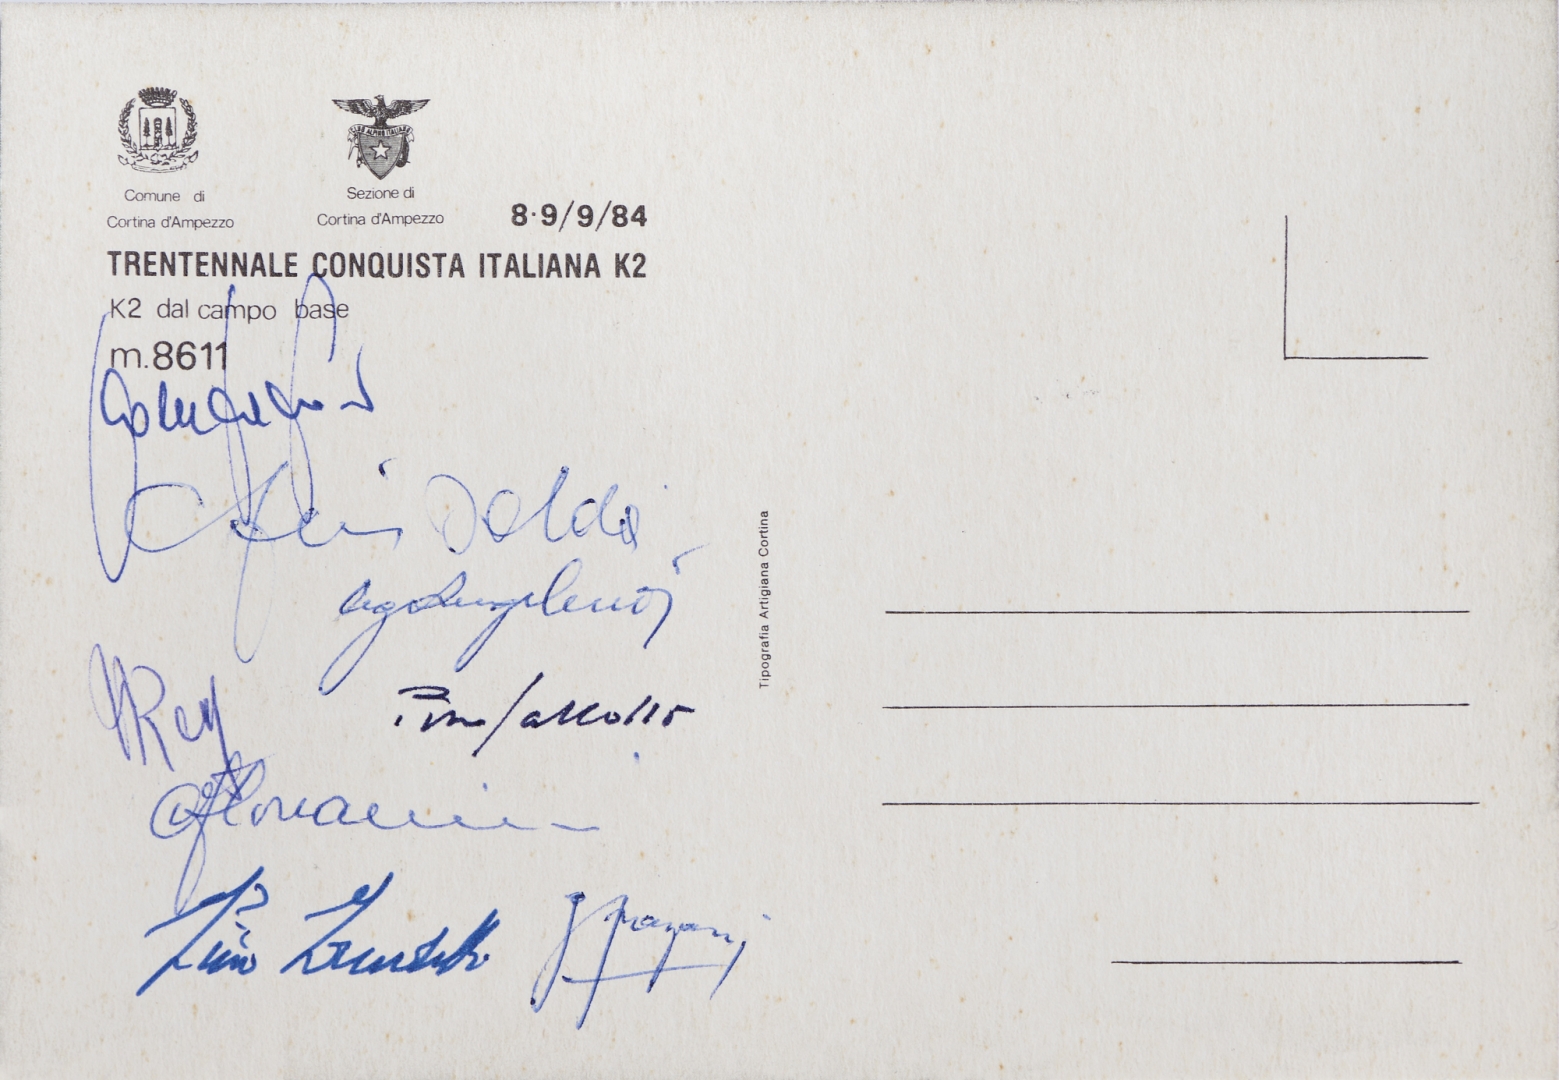 CLUB ALPINO ITALIANO
Comune di
Cortina d'Ampezzo
Sezione di
Cortina d'Ampezzo
8·9/9/84
TRENTENNALE CONQUISTA ITALIANA K2
K2 dal campo base
m.8611
Soldà
Ugo Angelino
Rey
Pino Gallotti
Floreanini
Lino Lacedelli
Pagani
Tipografia Artigiana Cortina